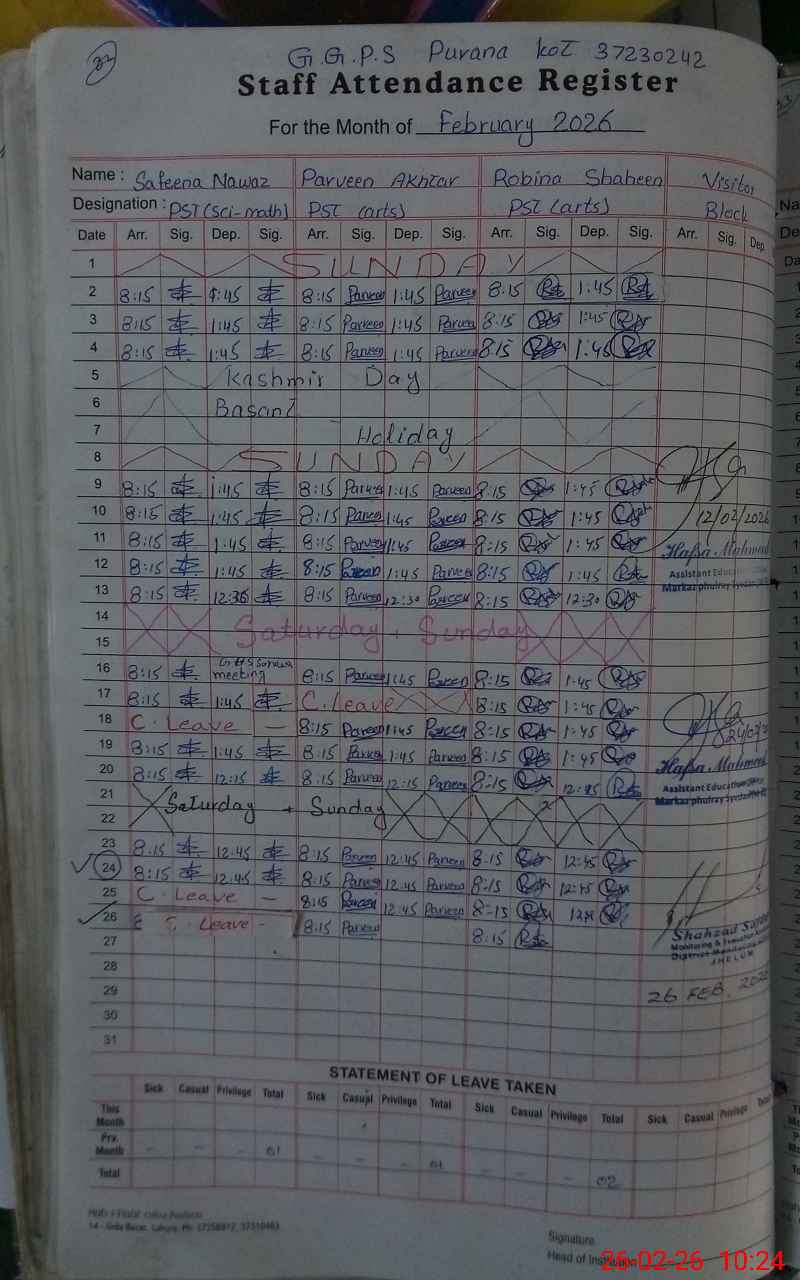 G.G.P.S Purana Kot 37230242
Staff Attendance Register
For the Month of February 2026
Name : Safeena Nawaz Parveen Akhtar Robina Shaheen Visitor
Designation : PST (Sci-math) PST (arts) PST (arts) Block
Date Arr. Sig. Dep. Sig. Arr. Sig. Dep. Sig. Arr. Sig. Dep. Sig. Arr. Sig. Dep.
1 SUNDAY
2 8:15 1:45 8:15 Parveen 1:45 Parveen 8:15 1:45
3 8:15 1:45 8:15 Parveen 1:45 Parveen 8:15 1:45
4 8:15 1:45 8:15 Parveen 1:45 Parveen 8:15 1:45
5 Kashmir Day
6 Basant
7 Holiday
8 SUNDAY
9 8:15 1:45 8:15 Parveen 1:45 Parveen 8:15 1:45
10 8:15 1:45 8:15 Parveen 1:45 Parveen 8:15 1:45 12/02/2026
11 8:15 1:45 8:15 Parveen 1:45 Parveen 8:15 1:45 Hafsa Mahmood
12 8:15 1:45 8:15 Parveen 1:45 Parveen 8:15 1:45 Assistant Education
13 8:15 12:30 8:15 Parveen 12:30 Parveen 8:15 12:30 Markaz phulray Syedan
14 Saturday + Sunday
15
16 8:15 meeting 8:15 Parveen 1:45 Parveen 8:15 1:45
17 8:15 1:45 C. Leave 8:15 1:45
18 C. Leave — 8:15 Parveen 1:45 Parveen 8:15 1:45
19 8:15 1:45 8:15 Parveen 1:45 Parveen 8:15 1:45 Hafsa Mahmood
20 8:15 12:15 8:15 Parveen 12:15 Parveen 8:15 12:15 Assistant Education
21 Saturday + Sunday Markaz phulray Syedan
22
23 8:15 12:45 8:15 Parveen 12:45 Parveen 8:15 12:45
24 8:15 12:45 8:15 Parveen 12:45 Parveen 8:15 12:45
25 C. Leave — 8:15 Parveen 12:45 Parveen 8:15
26 C. Leave - 8:15 Parveen 8:15 Shahzad
27 Monitoring & Evaluation
28 JHELUM
29 26 FEB. 2026
30
31
STATEMENT OF LEAVE TAKEN
Sick Casual Privilege Total Sick Casual Privilege Total Sick Casual Privilege Total Sick Casual Privilege Total
This Month
Prv. Month - - - 01 - - - 01 - - - 02
Total
14 - Urdu Bazar, Lahore. Ph:
Signature
Head of Institution
26-02-26 10:24